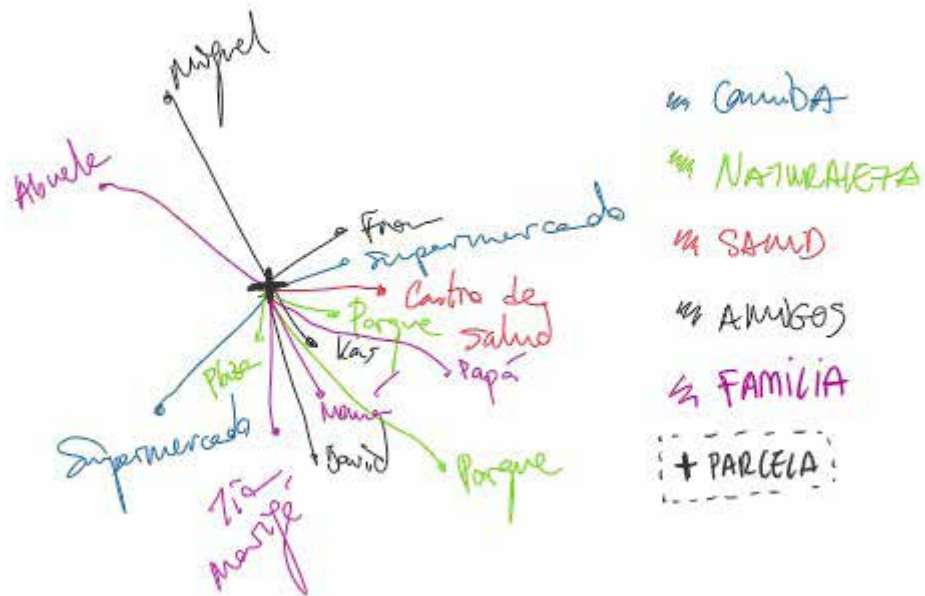 Miguel
Abuela
Fran
Supermercado
Castro de
Salud
Parque
Plaza
Papá
Mama
Supermercado
David
Parque
Tía
COMIDA
NATURALEZA
SALUD
AMIGOS
FAMILIA
+ PARCELA